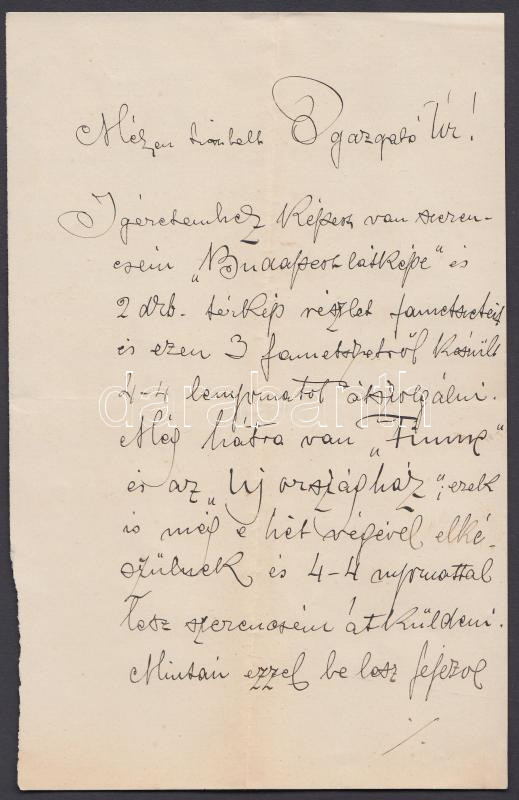 Mélyen tisztelt Igazgató Úr!
Igéretemhez képest van szeren-
csém "Budapest látképe" és
2 drb. térkép részlet fametszeteit
és ezen 3 fametszetről készült
4-4 lenyomatot átszolgálni.
Még hátra van "Fiume"
és az "Új országház"; ezek
is még e hét végével elké-
szülnek és 4-4 nyomattal
lesz szerencsém átküldeni.
Miután ezzel be lesz fejezve
./.
darabanth